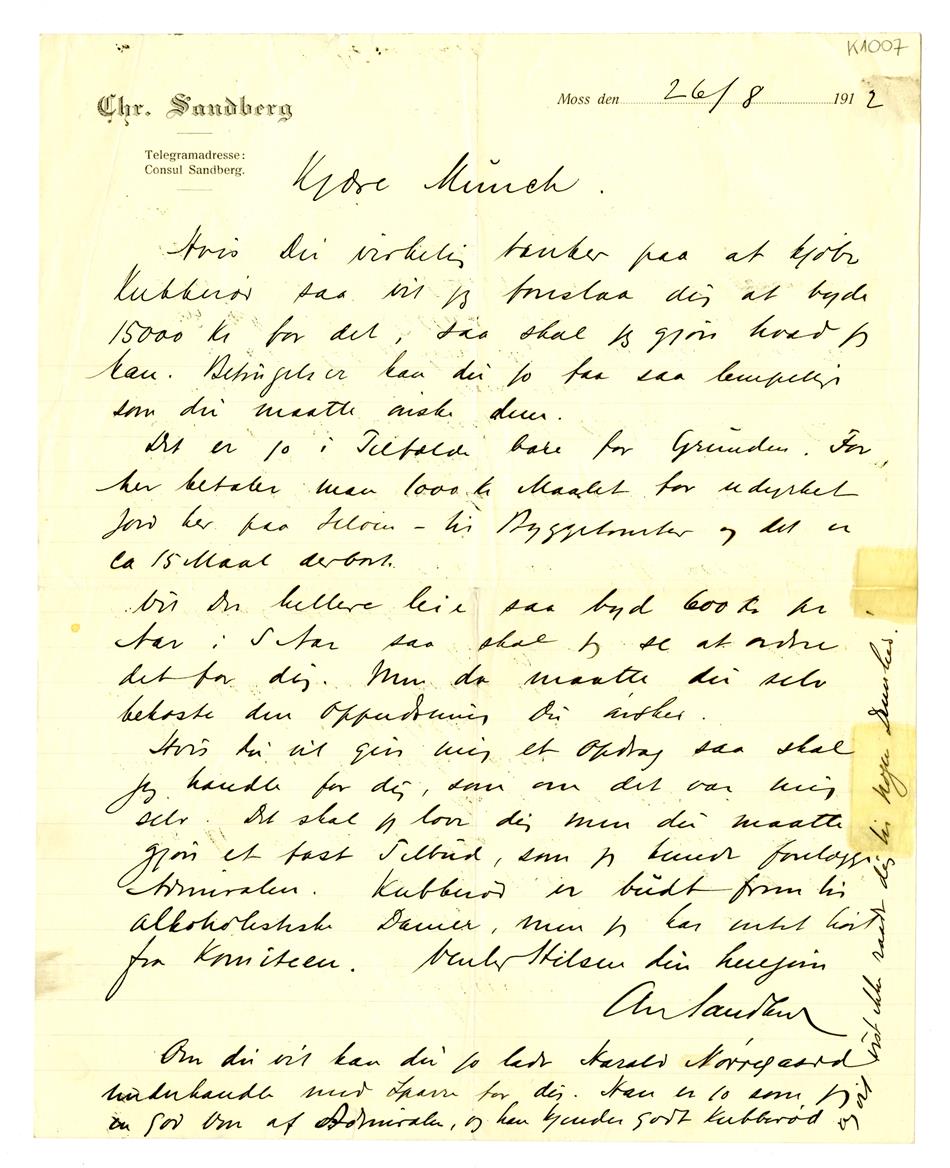 K1007
Chr. Sandberg
Moss den 26/8 1912
Telegramadresse:
Consul Sandberg.
Kjære Münch.
Hvis Du virkelig tænker paa at kjøbe
Kubberød saa vil jeg foreslaa dig at byde
15000 Kr for det, saa skal jeg gjøre hvad jeg
kan. Betingelser kan du jo faa saa lempelige
som du maatte ønske dem.
Det er jo i Tilfælde bare for Grunden. For
her betaler man 1000 kr Maalet for udyrket
Jord her paa Jeløen – til Byggetomter og det er
ca 15 Maal derbort.
Vil Du hellere leie saa byd 600 Kr pr
Aar i 5 Aar saa skal jeg se at ordne
det for dig. Men da maatte du selv
bekoste den Oppudsning Du ønsker.
Hvis du vil give mig et Opdrag saa skal
jeg handle for dig, som om det var mig
selv. Det skal jeg love dig men du maatte
gjøre et fast Tilbud, som jeg kunde forelægge
Admiralen. Kubberød er budt frem til
alkoholistiske Damer, men jeg har intet hørt
fra Komiteen. Venlig Hilsen din hengivne
Chr Sandberg
Om du vil kan du jo lade Harald Nørregaard
underhandle med Sparre for dig. Han er jo som jeg
en god Ven af Admiralen, og han kjender godt Kubberød
og vil vist ikke raade dig til nogen Dumhed.